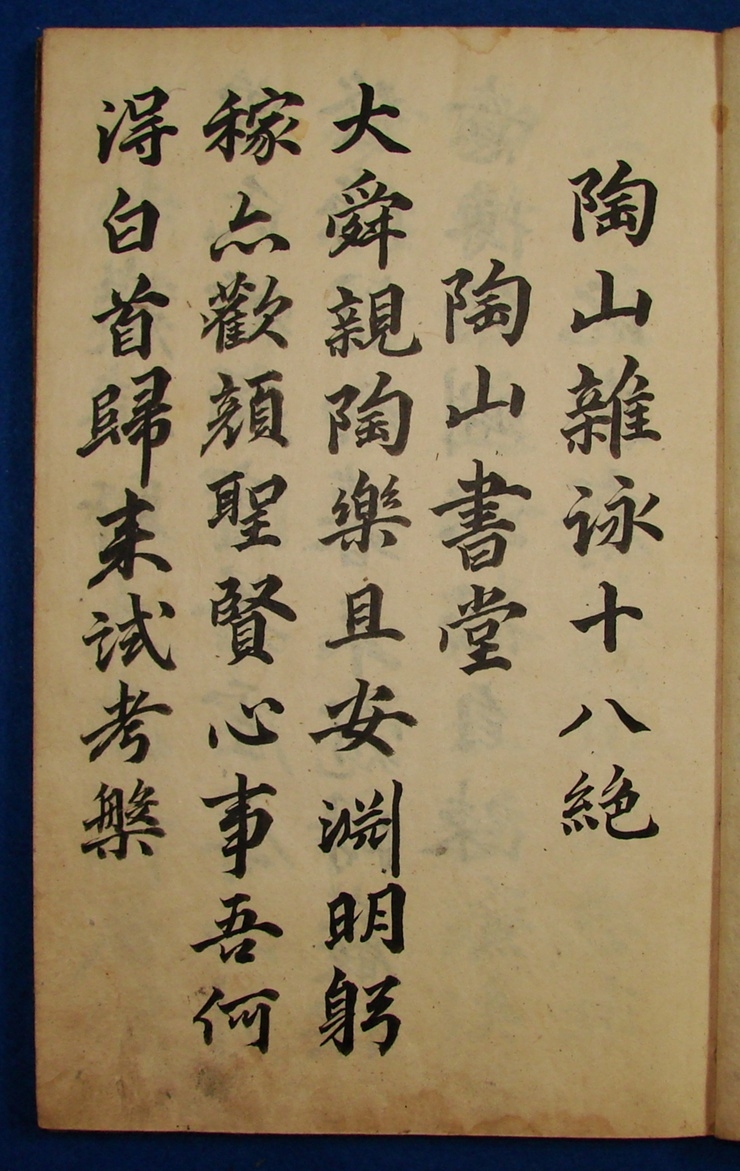 陶山雜詠十八絶
陶山書堂
大舜親陶樂且安淵明躬
稼亦歡顔聖賢心事吾何
得白首歸来試考槃